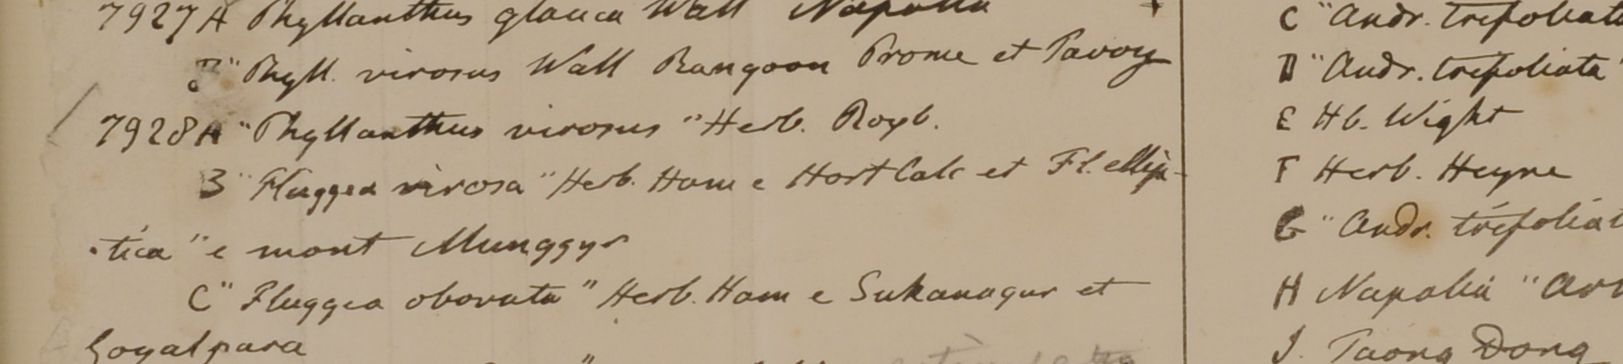 7927 A Phyllanthus glauca Wall Napalia
B "Phyll. virosus Wall Rangoon Prome et Tavoy
7928 A "Phyllanthus virosus" Herb. Roxb.
B "Fluggea virosa" Herb. Ham e Hort Calc et Fl. ellip-
-tica" e mont Munggyr
C "Fluggea obovata" Herb. Ham e Sukanagur et
Goyalpara
C "Andr. trifoliat
D "Andr. trifoliata"
E Hb. Wight
F Herb. Heyne
G "Andr. trifoliat
H Napalia "An
J. Taong Dong